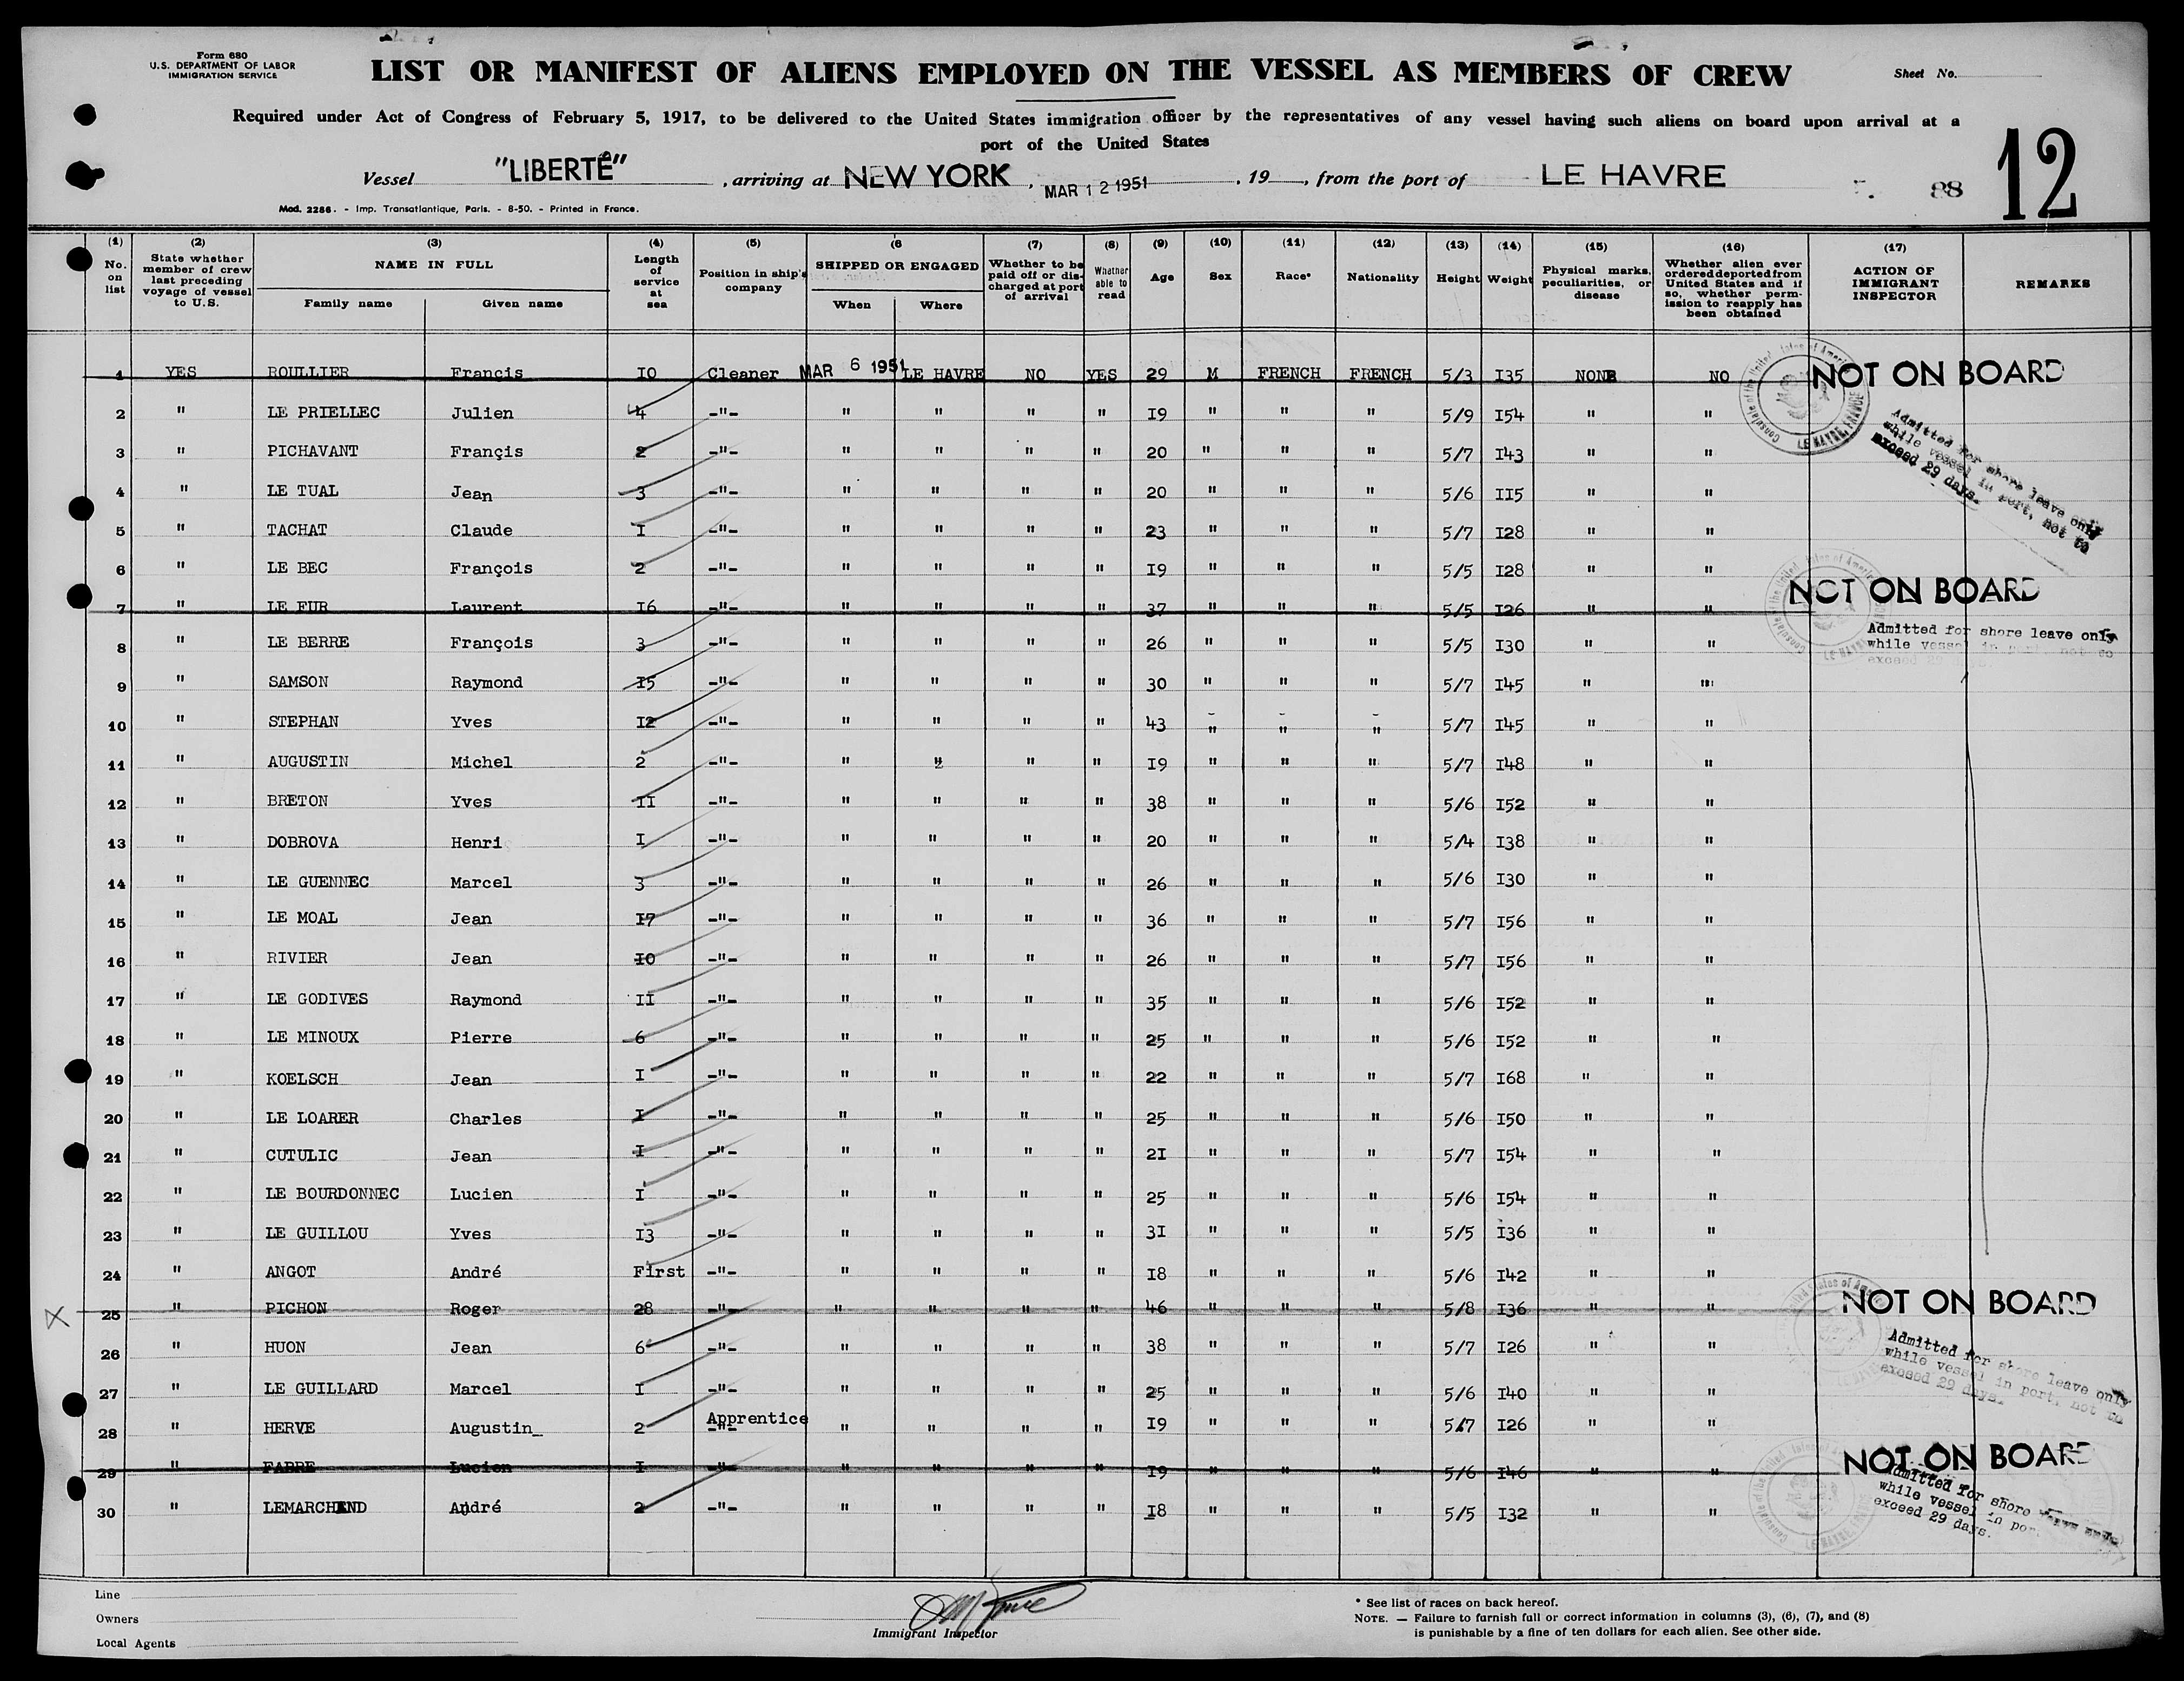 Form 680
U.S. DEPARTMENT OF LABOR
IMMIGRATION SERVICE
LIST OR MANIFEST OF ALIENS EMPLOYED ON THE VESSEL AS MEMBERS OF CREW
Sheet No.
Required under Act of Congress of February 5, 1917, to be delivered to the United States immigration officer by the representatives of any vessel having such aliens on board upon arrival at a
port of the United States
12
Vessel "LIBERTÉ", arriving at NEW YORK, MAR 12 1951, 19, from the port of LE HAVRE
88
Mod. 2286. - Imp. Transatlantique, Paris. - 8-50. - Printed in France.
(1) No. on list (2) State whether member of crew last preceding voyage of vessel to U.S. (3) NAME IN FULL Family name Given name (4) Length of service at sea (5) Position in ship's company (6 SHIPPED OR ENGAGED When Where (7) Whether to be paid off or discharged at port of arrival (8) Whether able to read (9) Age (10) Sex (11) Race* (12) Nationality (13) Height (14) Weight (15) Physical marks, peculiarities, or disease (16) Whether alien ever ordered deported from United States and if so, whether permission to reapply has been obtained (17) ACTION OF IMMIGRANT INSPECTOR REMARKS
1 YES ROULLIER Francis I0 Cleaner MAR 6 1951 LE HAVRE NO YES 29 M FRENCH FRENCH 5/3 I35 NONE NO NOT ON BOARD
2 " LE PRIELLEC Julien 4 -"- " " " " I9 " " " 5/9 I54 " "
3 " PICHAVANT Françis 2 -"- " " " " 20 " " " 5/7 I43 " "
4 " LE TUAL Jean 3 -"- " " " " 20 " " " 5/6 II5 " "
5 " TACHAT Claude I -"- " " " " 23 " " " 5/7 I28 " "
Admitted for shore leave only
while vessel in port, not to
exceed 29 days.
6 " LE BEC François 2 -"- " " " " I9 " " " 5/5 I28 " "
7 " LE FUR Laurent I6 -"- " " " " 37 " " " 5/5 I26 " " NOT ON BOARD
8 " LE BERRE François 3 -"- " " " " 26 " " " 5/5 I30 " "
Admitted for shore leave only
while vessel in port, not to
exceed 29
9 " SAMSON Raymond I5 -"- " " " " 30 " " " 5/7 I45 " "
10 " STEPHAN Yves I2 -"- " " " " 43 " " " 5/7 I45 " "
11 " AUGUSTIN Michel 2 -"- " " " " I9 " " " 5/7 I48 " "
12 " BRETON Yves II -"- " " " " 38 " " " 5/6 I52 " "
13 " DOBROVA Henri I -"- " " " " 20 " " " 5/4 I38 " "
14 " LE GUENNEC Marcel 3 -"- " " " " 26 " " " 5/6 I30 " "
15 " LE MOAL Jean I7 -"- " " " " 36 " " " 5/7 I56 " "
16 " RIVIER Jean I0 -"- " " " " 26 " " " 5/7 I56 " "
17 " LE GODIVES Raymond II -"- " " " " 35 " " " 5/6 I52 " "
18 " LE MINOUX Pierre 6 -"- " " " " 25 " " " 5/6 I52 " "
19 " KOELSCH Jean I -"- " " " " 22 " " " 5/7 I68 " "
20 " LE LOARER Charles I -"- " " " " 25 " " " 5/6 I50 " "
21 " CUTULIC Jean I -"- " " " " 2I " " " 5/7 I54 " "
22 " LE BOURDONNEC Lucien I -"- " " " " 25 " " " 5/6 I54 " "
23 " LE GUILLOU Yves I3 -"- " " " " 3I " " " 5/5 I36 " "
24 " ANGOT André First -"- " " " " I8 " " " 5/6 I42 " "
X 25 " PICHON Roger 28 -"- " " " " 46 " " " 5/8 I36 " " NOT ON BOARD
26 " HUON Jean 6 -"- " " " " 38 " " " 5/7 I26 " "
Admitted for shore leave only
while vessel in port, not to
exceed 29 days.
27 " LE GUILLARD Marcel I -"- " " " " 25 " " " 5/6 I40 " "
28 " HERVE Augustin_ 2 Apprentice -"- " " " " I9 " " " 5/7 I26 " "
29 " FABRE Lucien I -"- " " " " I9 " " " 5/6 I46 " " NOT ON BOARD
30 " LEMARCHAND André 2 -"- " " " " I8 " " " 5/5 I32 " "
Admitted for shore
while vessel in
exceed 29 days.
Line
Owners
Local Agents
Immigrant Inspector
* See list of races on back hereof.
NOTE. — Failure to furnish full or correct information in columns (3), (6), (7), and (8)
is punishable by a fine of ten dollars for each alien. See other side.